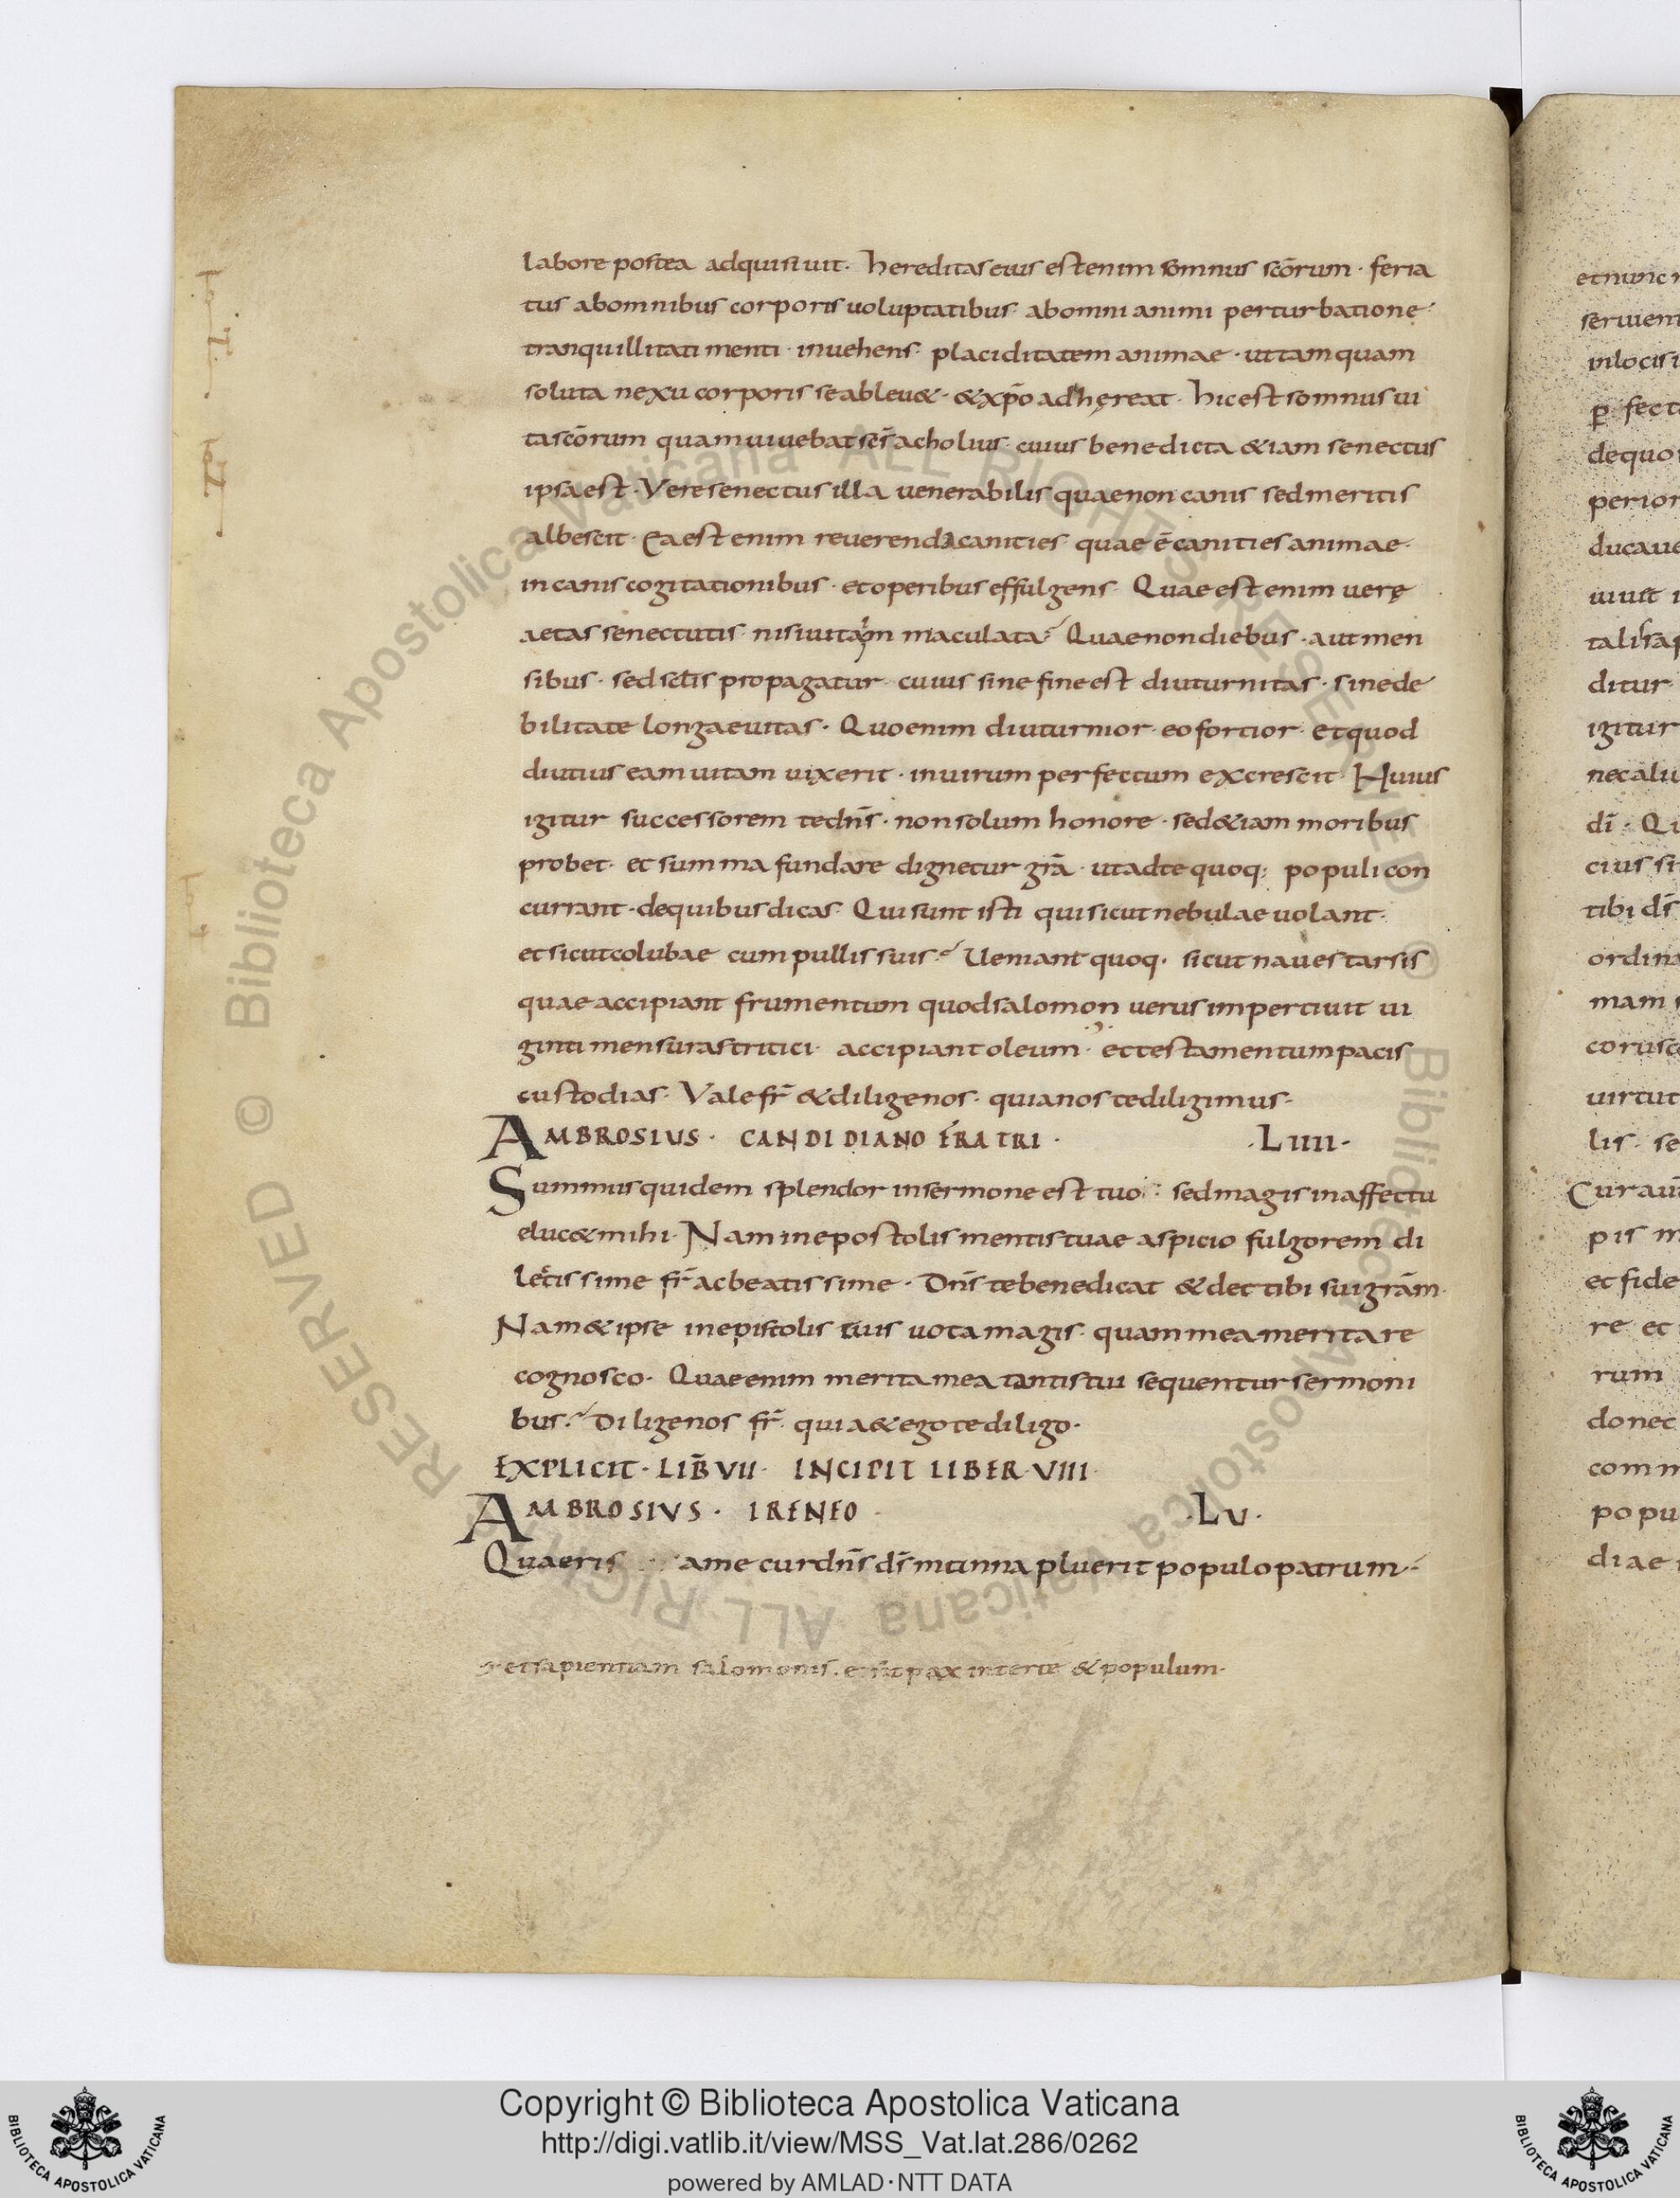 labore postea adquisiuit · hereditas eius est enim somnus sc̄orum · feria
tus ab omnibus corporis uoluptatibus · ab omni animi perturbatione
tranquillitati menti · inuehens · placiditatem animae · ut tamquam
soluta nexu corporis se ableu& · & xp̄o adhęreat · hic est somnus ui
ta sc̄orum quam uiuebat sc̄s acholius · cuius benedicta &iam senectus
ipsa est · Vere senectus illa uenerabilis quae non canis sed meritis
albescit · Ea est enim reuerenda canities quae ē canities animae ·
in canis cogitationibus · et operibus effulgens · Quae est enim uerę
aetas senectutis nisi uita inmaculata? Quae non diebus · aut men
sibus · sed sc̄lis propagatur · cuius sine fine est diuturnitas · sine de
bilitate longaeuitas · Quo enim diuturnior · eo fortior · et quod
diutius eam uitam uixerit · in uirum perfectum excrescit · Huius
igitur successorem te dn̄s · non solum honore · sed &iam moribus
probet · et summa fundare dignetur gr̄a · ut ad te quoq; populi con
currant · de quibus dicas · Qui sunt isti qui sicut nebulae uolant ·
et sicut colubae cum pullis suis? Ueniant quoq · sicut naues tarsis
quae accipiant frumentum quod salomon uerus impertiuit ui
ginti mensuras tritici · accipiant oleum · et testamentum pacis
custodias · Vale fr̄ & dilige nos · quia nos te diligimus ·
AMBROSIUS · CANDIDIANO FRATRI · · LIIII ·
Summus quidem splendor in sermone est tuo : sed magis in affectu
eluc& mihi · Nam in epostolis mentis tuae aspicio fulgorem di
lectissime fr̄ ac beatissime · Dn̄s te benedicat & det tibi sui gr̄am ·
Nam & ipse in epistolis tuis uota magis · quam mea merita re
cognosco · Quae enim merita mea tantis tui sequentur sermoni
bus? Dilige nos fr̄ · quia & ego te diligo ·
EXPLICIT · LIB̄ VII · INCIPIT LIBER VIII ·
AMBROSIVS · IRENEO · · LV ·
Quaeris a me cur dn̄s ds̄ manna pluerit populo patrum
et sapientiam salomonis · et sit pax inter te & populum ·
Copyright © Biblioteca Apostolica Vaticana
http://digi.vatlib.it/view/MSS_Vat.lat.286/0262
powered by AMLAD · NTT DATA
BIBLIOTECA APOSTOLICA VATICANA
BIBLIOTECA APOSTOLICA VATICANA